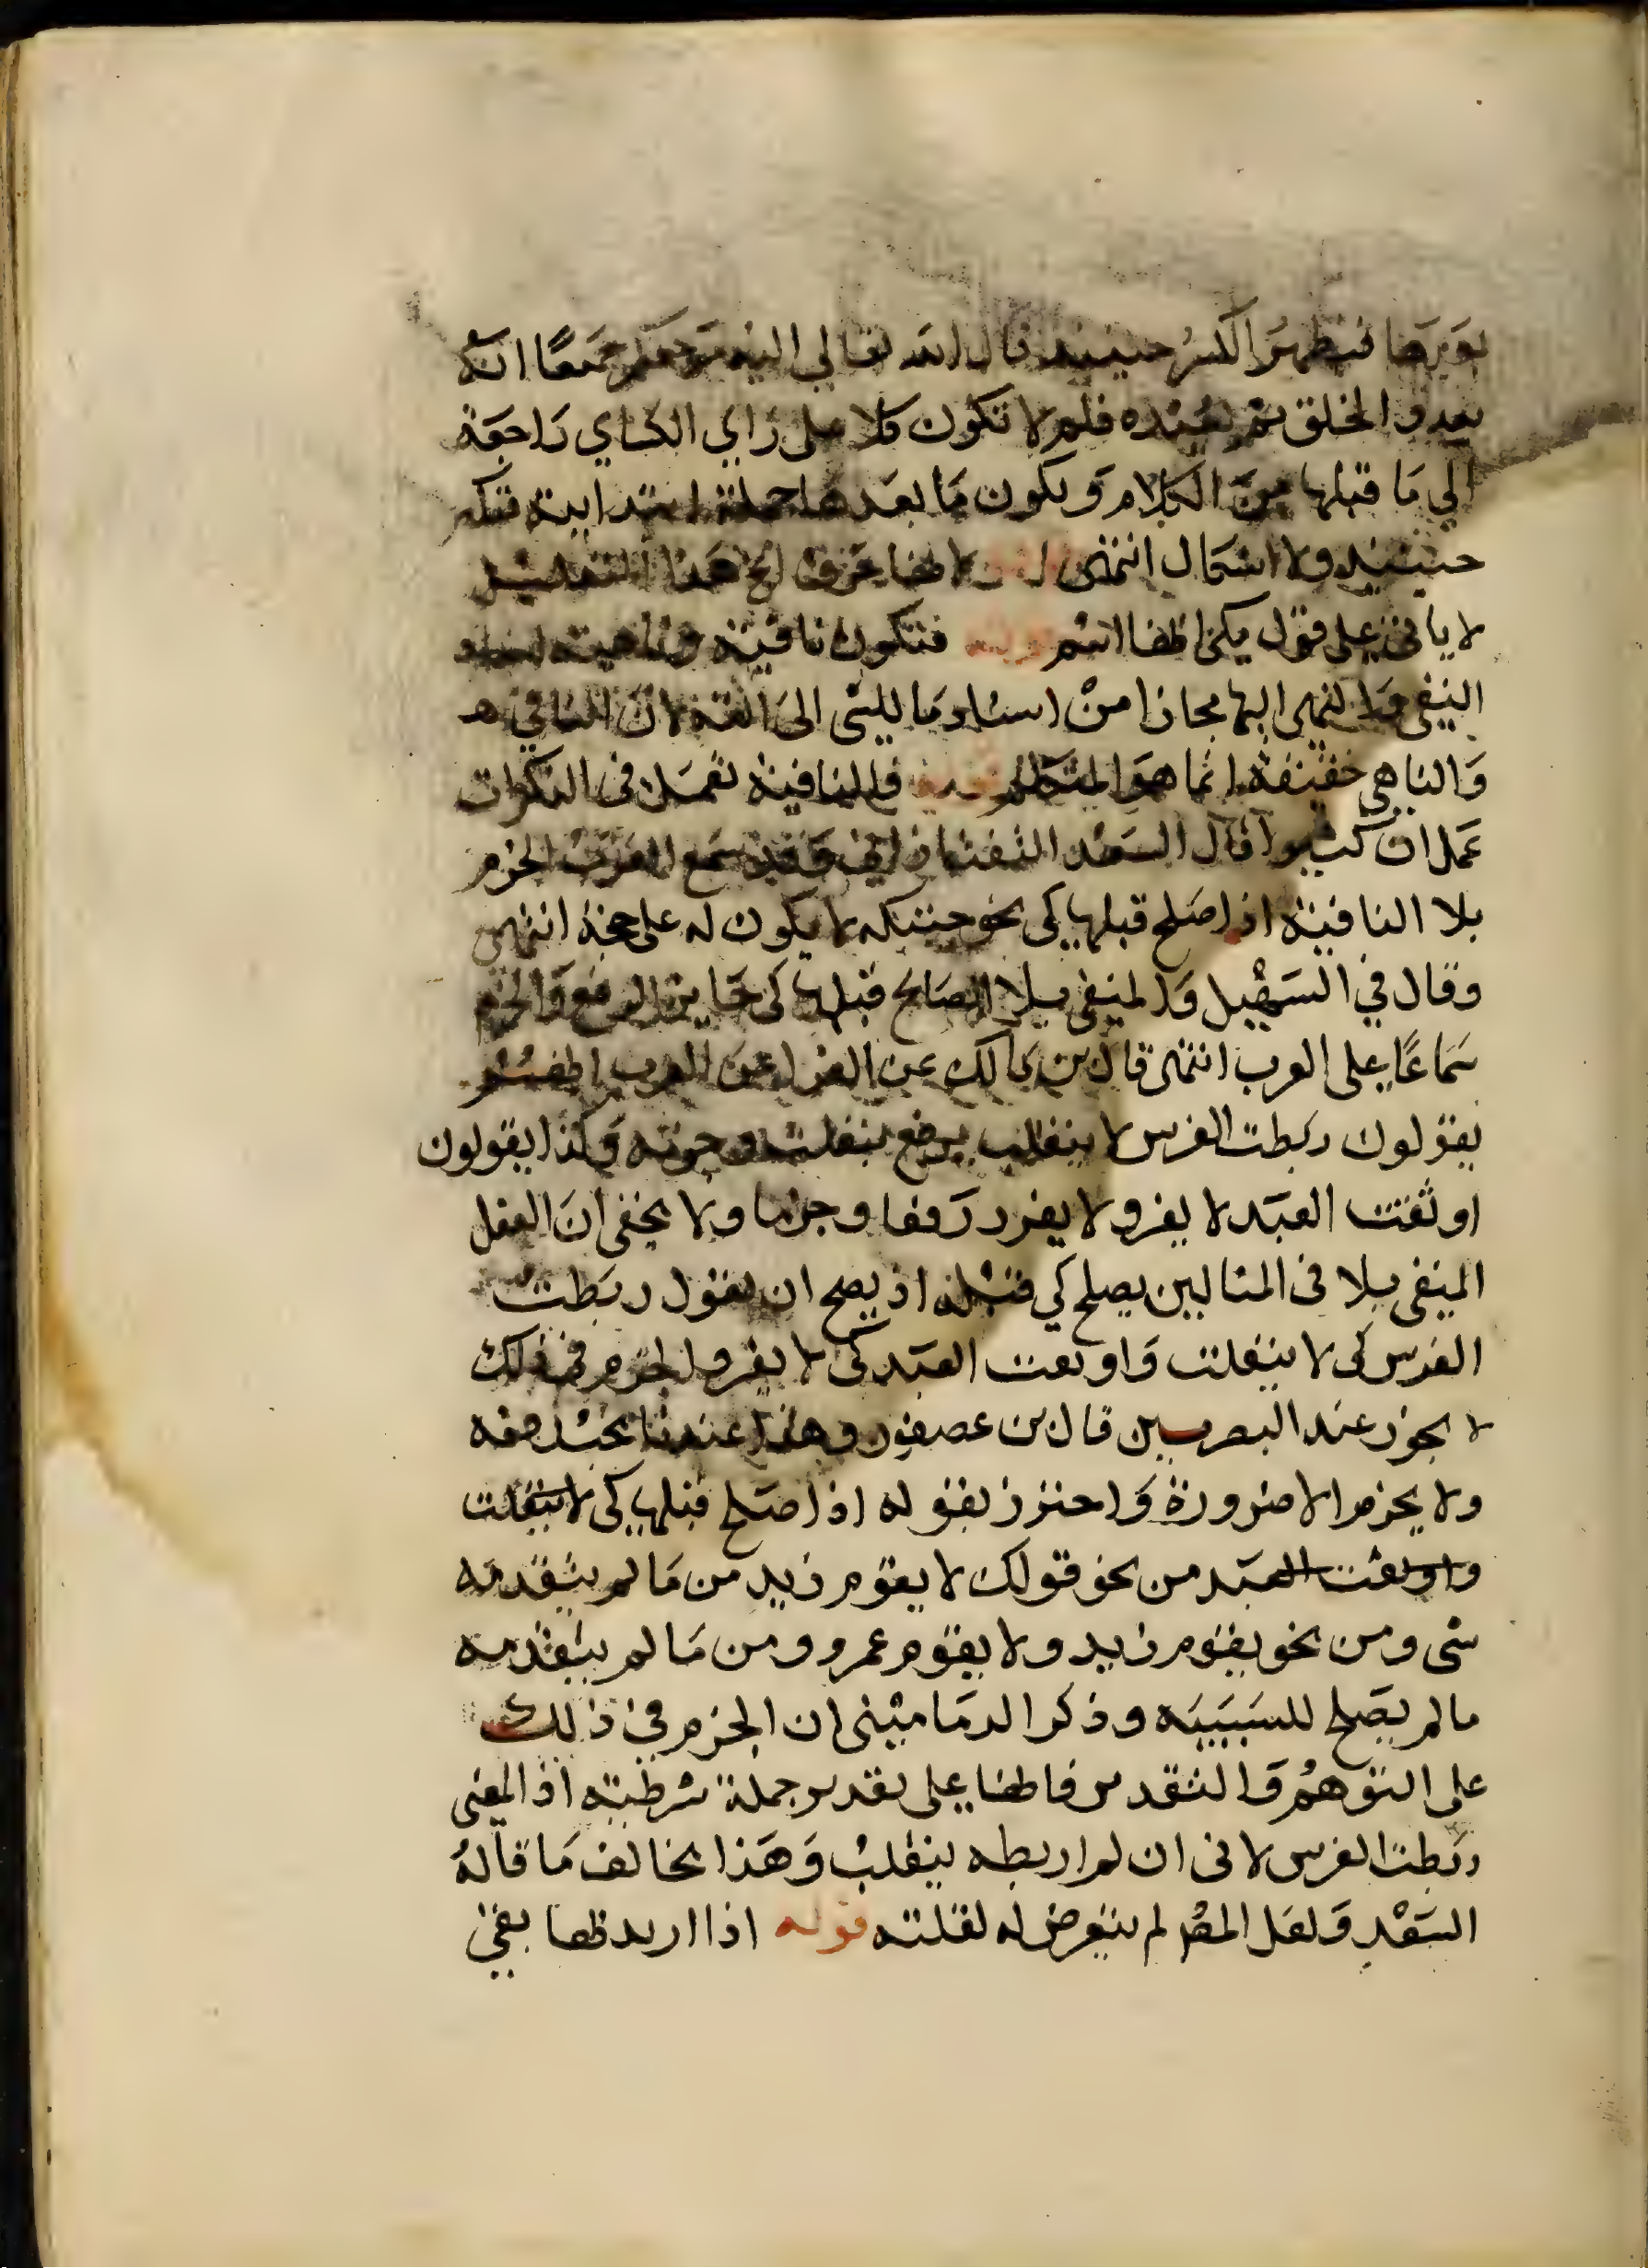 فيظهر الكسر حينيذ قال الله تعالي اليه مرجعكم جميعًا انه
يبدو الخلق ثم يعيده فلم لا تكون كلا على راي الكساي راجعة
الي مَا قبلها من الكلام وَيكون مَا بعدها جملة ابتدابية فتكسر
حينيذ ولا اشكال انتهى
لا ياتى على قول اسم قوله فتكون نافية وناهية اسناد
النفى وَالنهى اليها مجازا من اسناد مَا للشى الى الته لان النافي
وَالناهى حقيقة انما هوَ المتكلم قوله فالنافية تعمَل فى النكرات
عَمل ان كثيرا قال السَعد التفتازاني وَقد سمع العرَب الجزم
بلا النافية اذا صَلح قبلها كى نحو جيتكه لا يكون له على حجة انتهى
وقال في التسهيل وَالمنفى بلا الصَالح قبلها كى جَايز الرفع وَالجزم
سَماعًا على العرب انتهى قال بن مَالك عن الفرا عن العرب
يقولون ربطت الفرس لا ينفلت برفع ينفلت وجزمه وَكذا يقولون
اوثقت العبَد لا يفر ولا يفرر رَفعا وجزما ولا يخفى انَ الفعل
المنفى بلا فى المثالين يصلح كي قبله اذ يصح ان يقول ربَطت
الفرس كى لا ينفلت وَاوتقت العبَد كى لا يفر والجزم في ذلك
لا يجوز عند البصريين قال بن عصفور وهذا عندنا
ولا يجزم الا ضرورة وَاحترز بقوله اذا صَلح قبلها كى لا ينفلت
واوتقت العبَد من نحو قولك لا يقوم زيد من مَا لم يتقدمه
شى ومن نحو يقوم زيد ولا يقوم عمرو ومن مَا لم يتقدمه
ما لم يصَلح للسَببيَه وذكر الدمَامينى ان الجزم في ذلك
على التوهمُ وَالتقدير على تقدير جملة شرطية اذ المعنى
ربَطت الفرس لانى ان لم اربطه ينفلت وَهَذا يخالف مَا قالهُ
السَعْد وَلعَل المصْ لم يتعرض له لقلته قوله اذا اريد